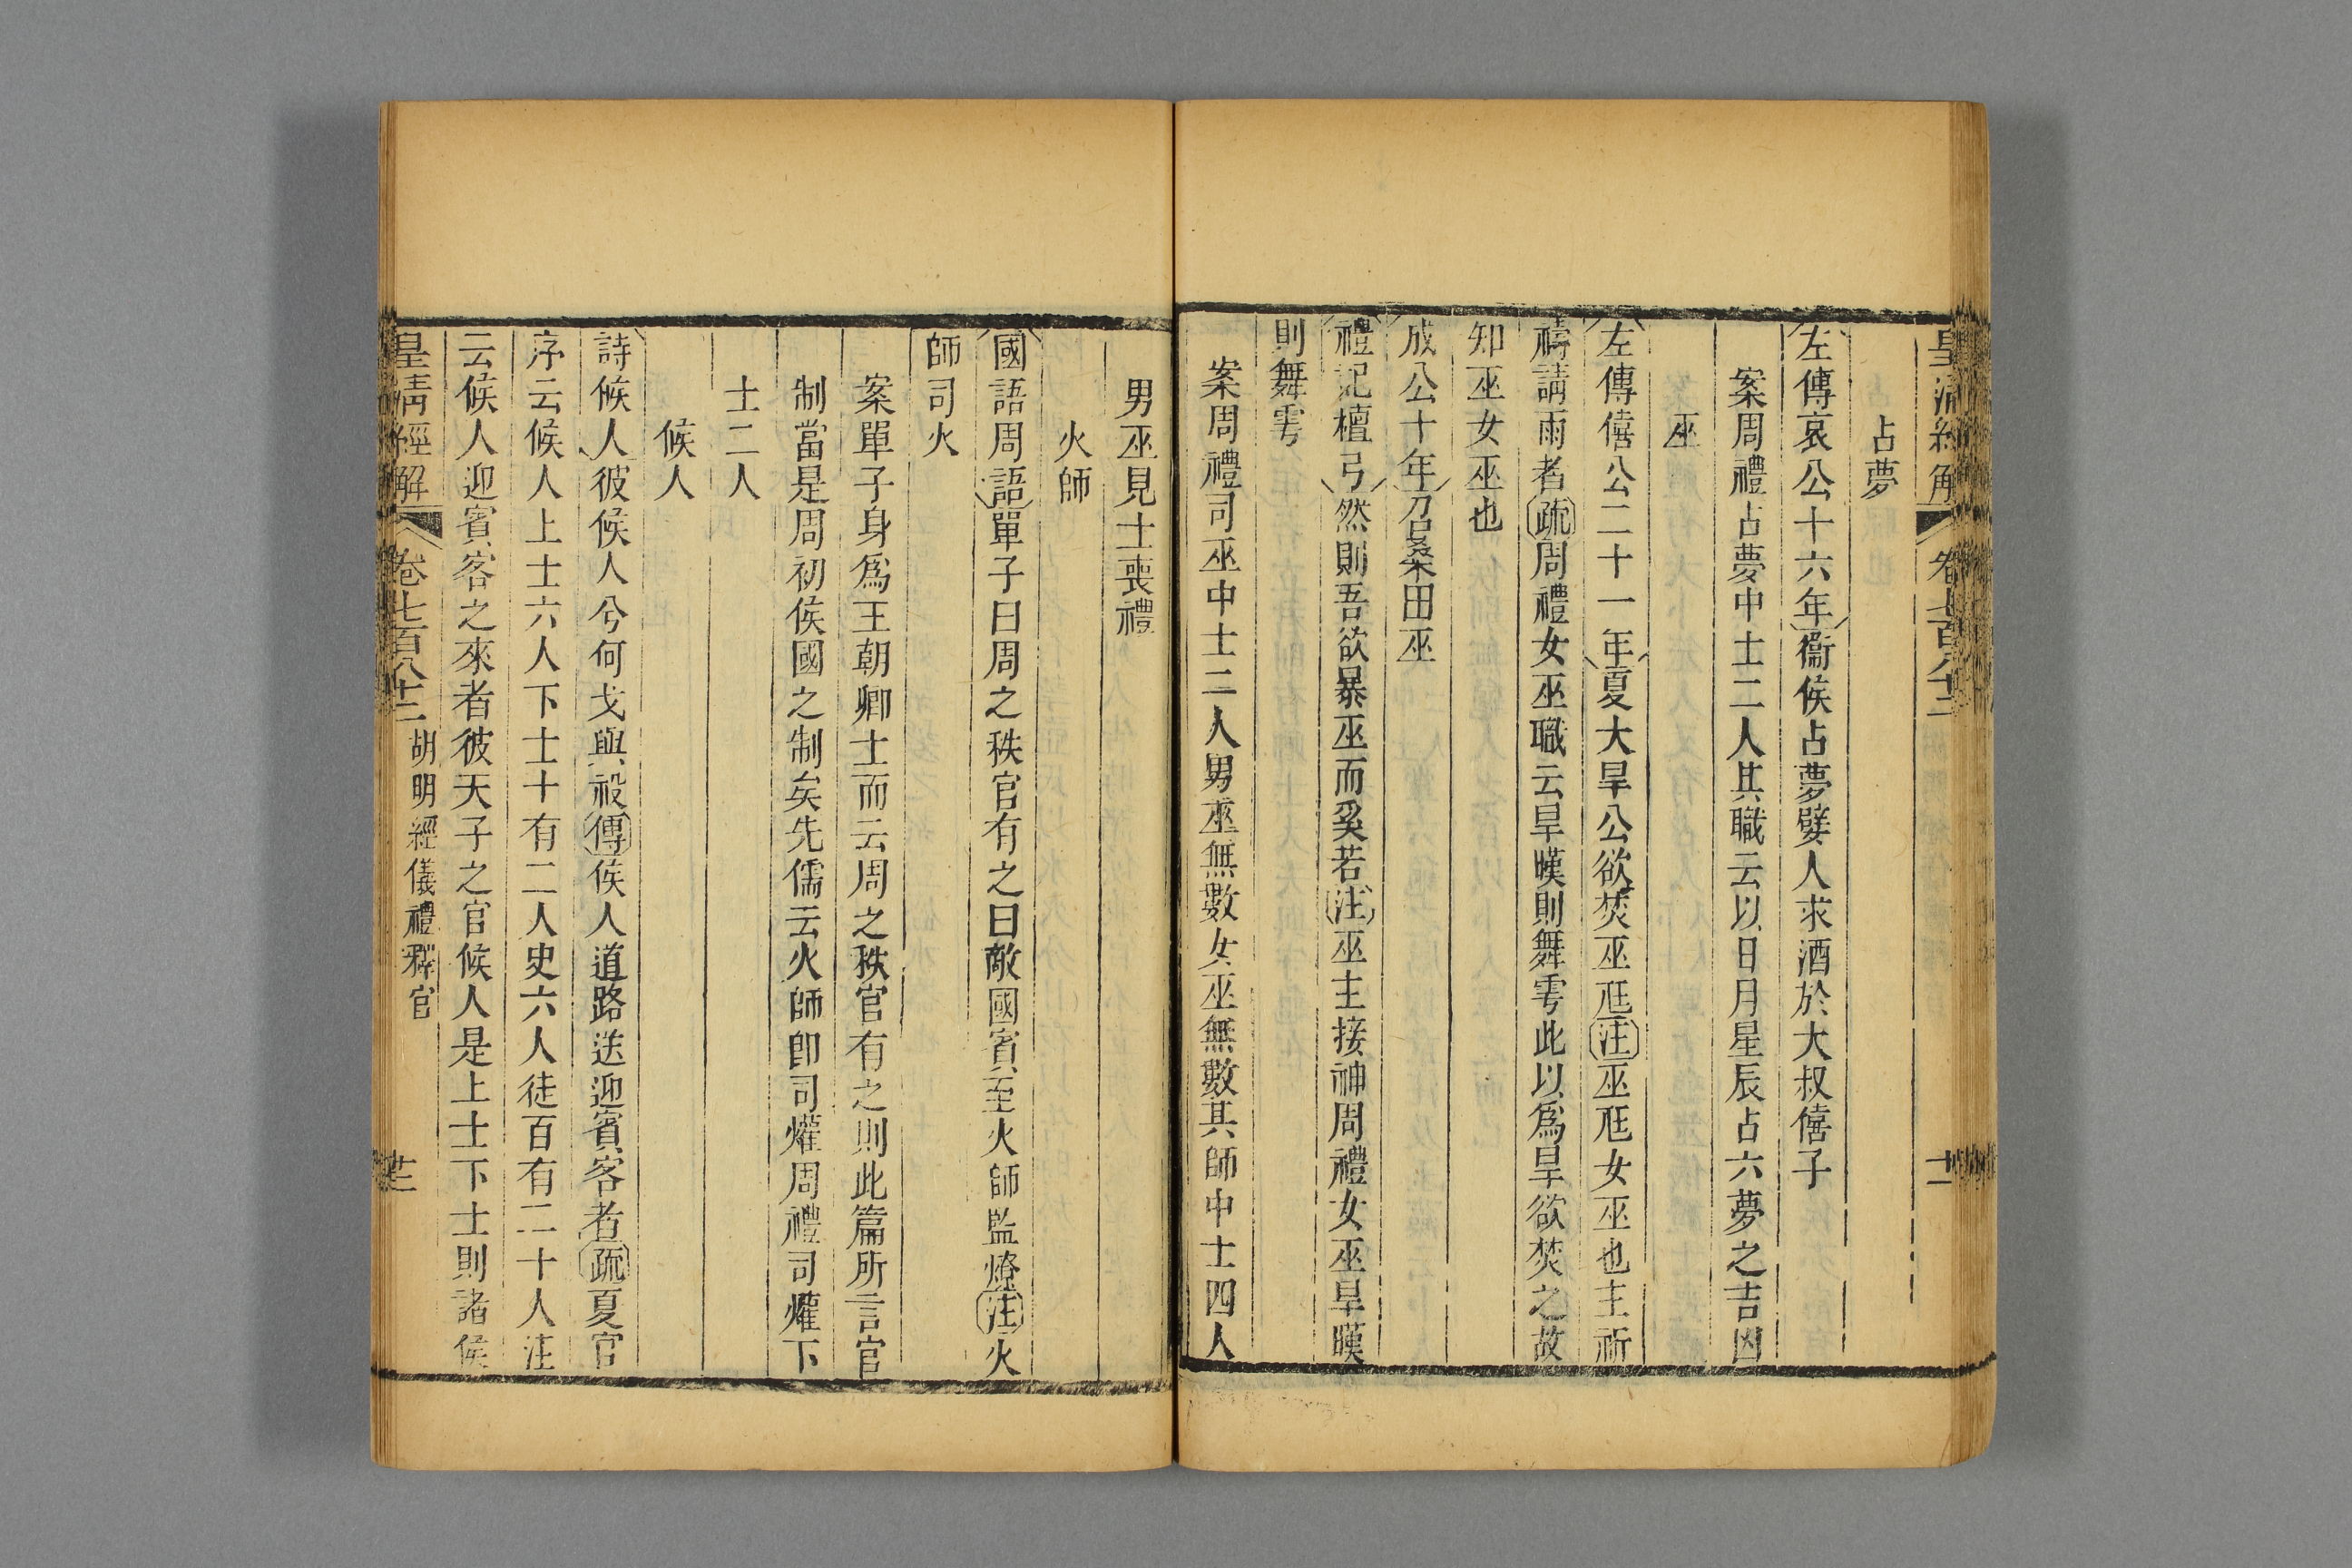 皇清經解 卷七百八十二 十二
占夢
左傳哀公十六年衞侯占夢嬖人求酒於大叔僖子
案周禮占夢中士二人其職云以日月星辰占六夢之吉凶
巫
左傳僖公二十一年夏大旱公欲焚巫尫注巫尫女巫也主祈
禱請雨者疏周禮女巫職云旱暵則舞雩此以爲旱欲焚之故
知巫女巫也
成公十年召桑田巫
禮記檀弓然則吾欲暴巫而奚若注巫主接神周禮女巫旱暵
則舞雩
案周禮司巫中士二人男巫無數女巫無數其師中士四人
男巫見士喪禮
火師
國語周語單子曰周之秩官有之曰敵國賓至火師監燎注火
師司火
案單子身爲王朝卿士而云周之秩官有之則此篇所言官
制當是周初侯國之制矣先儒云火師卽司爟周禮司爟下
士二人
候人
詩候人彼候人兮何戈與祋傳侯人道路送迎賓客者疏夏官
序云候人上士六人下士十有二人史六人徒百有二十人注
云候人迎賓客之來者彼天子之官候人是上士下士則諸侯
皇清經解 卷七百八十二 胡明經儀禮釋官